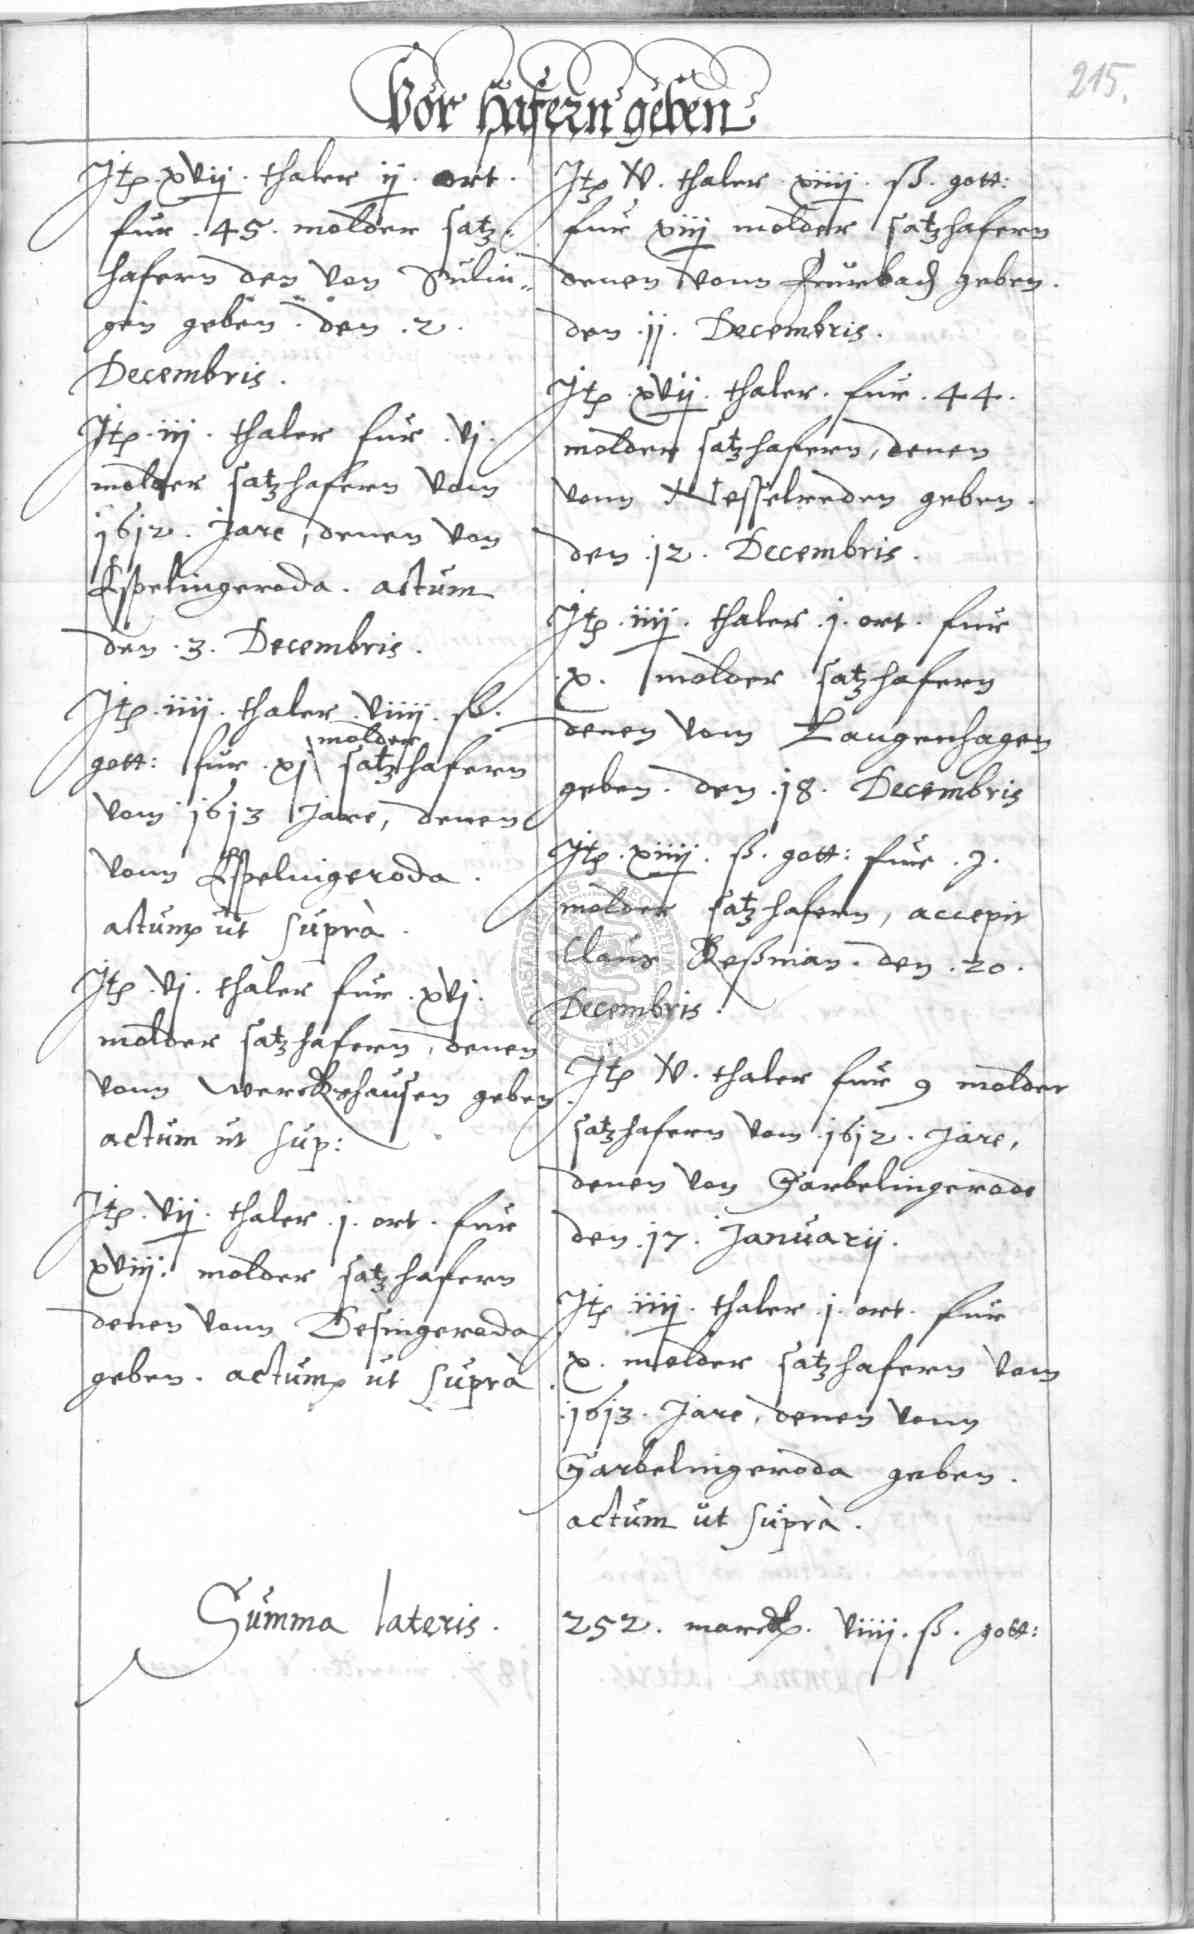 215.
Vor hafern geben
Itp xvij. thaler ij. ort.
fur. 45. molder satz=
hafern den von Sulin=
gen geben. den .2.
Decembris.
Itp. iij. thaler fur .vj.
molder satzhafern vom
1612. Jare, denen von
Espelingeroda. actum
den .3. Decembris.
Itp. iiij. thaler. viiij. ß.
gott: fur .xj molder satzhafern
vom 1613 Jare, denen
vonn Espelingeroda.
actump ut suprà.
Itp. vj. thaler fur .xvj.
molder satzhafern, denen
vonn Werckeshausen geben
actum ut sup:
Itp. vij. thaler .j. ort. fur
xviij. molder satzhafern
denen vonn Desingeroda
geben. actump ut suprà.
Itp v. thaler xiiij. ß. gott:
fur xiij molder satzhafern
denen vonn geben.
den .11. Decembris.
Itp. xvij. thaler. fur .44.
molder satzhafern, denen
vonn Nesselreden geben.
den .12. Decembris.
Itp. iiij. thaler .j. ort. fur
.x. molder satzhafern
denen vom Langenhagen
geben. den .18. Decembris
Itp. xiiij. ß. gott: fur .2.
molder satzhafern, accepit
Claus Reßman. den .20.
Decembris.
Itp v. thaler fur 9 molder
satzhafern vom .1612. Jare,
denen von Garbelingerode
den .17. Januarij.
Itp iiij. thaler .j. ort. fur
x. molder satzhafern vom
.1613. Jare, denen vonn
Garbelingeroda geben.
actum ut suprà.
Summa lateris. 252. marck. viiij. ß. gott: